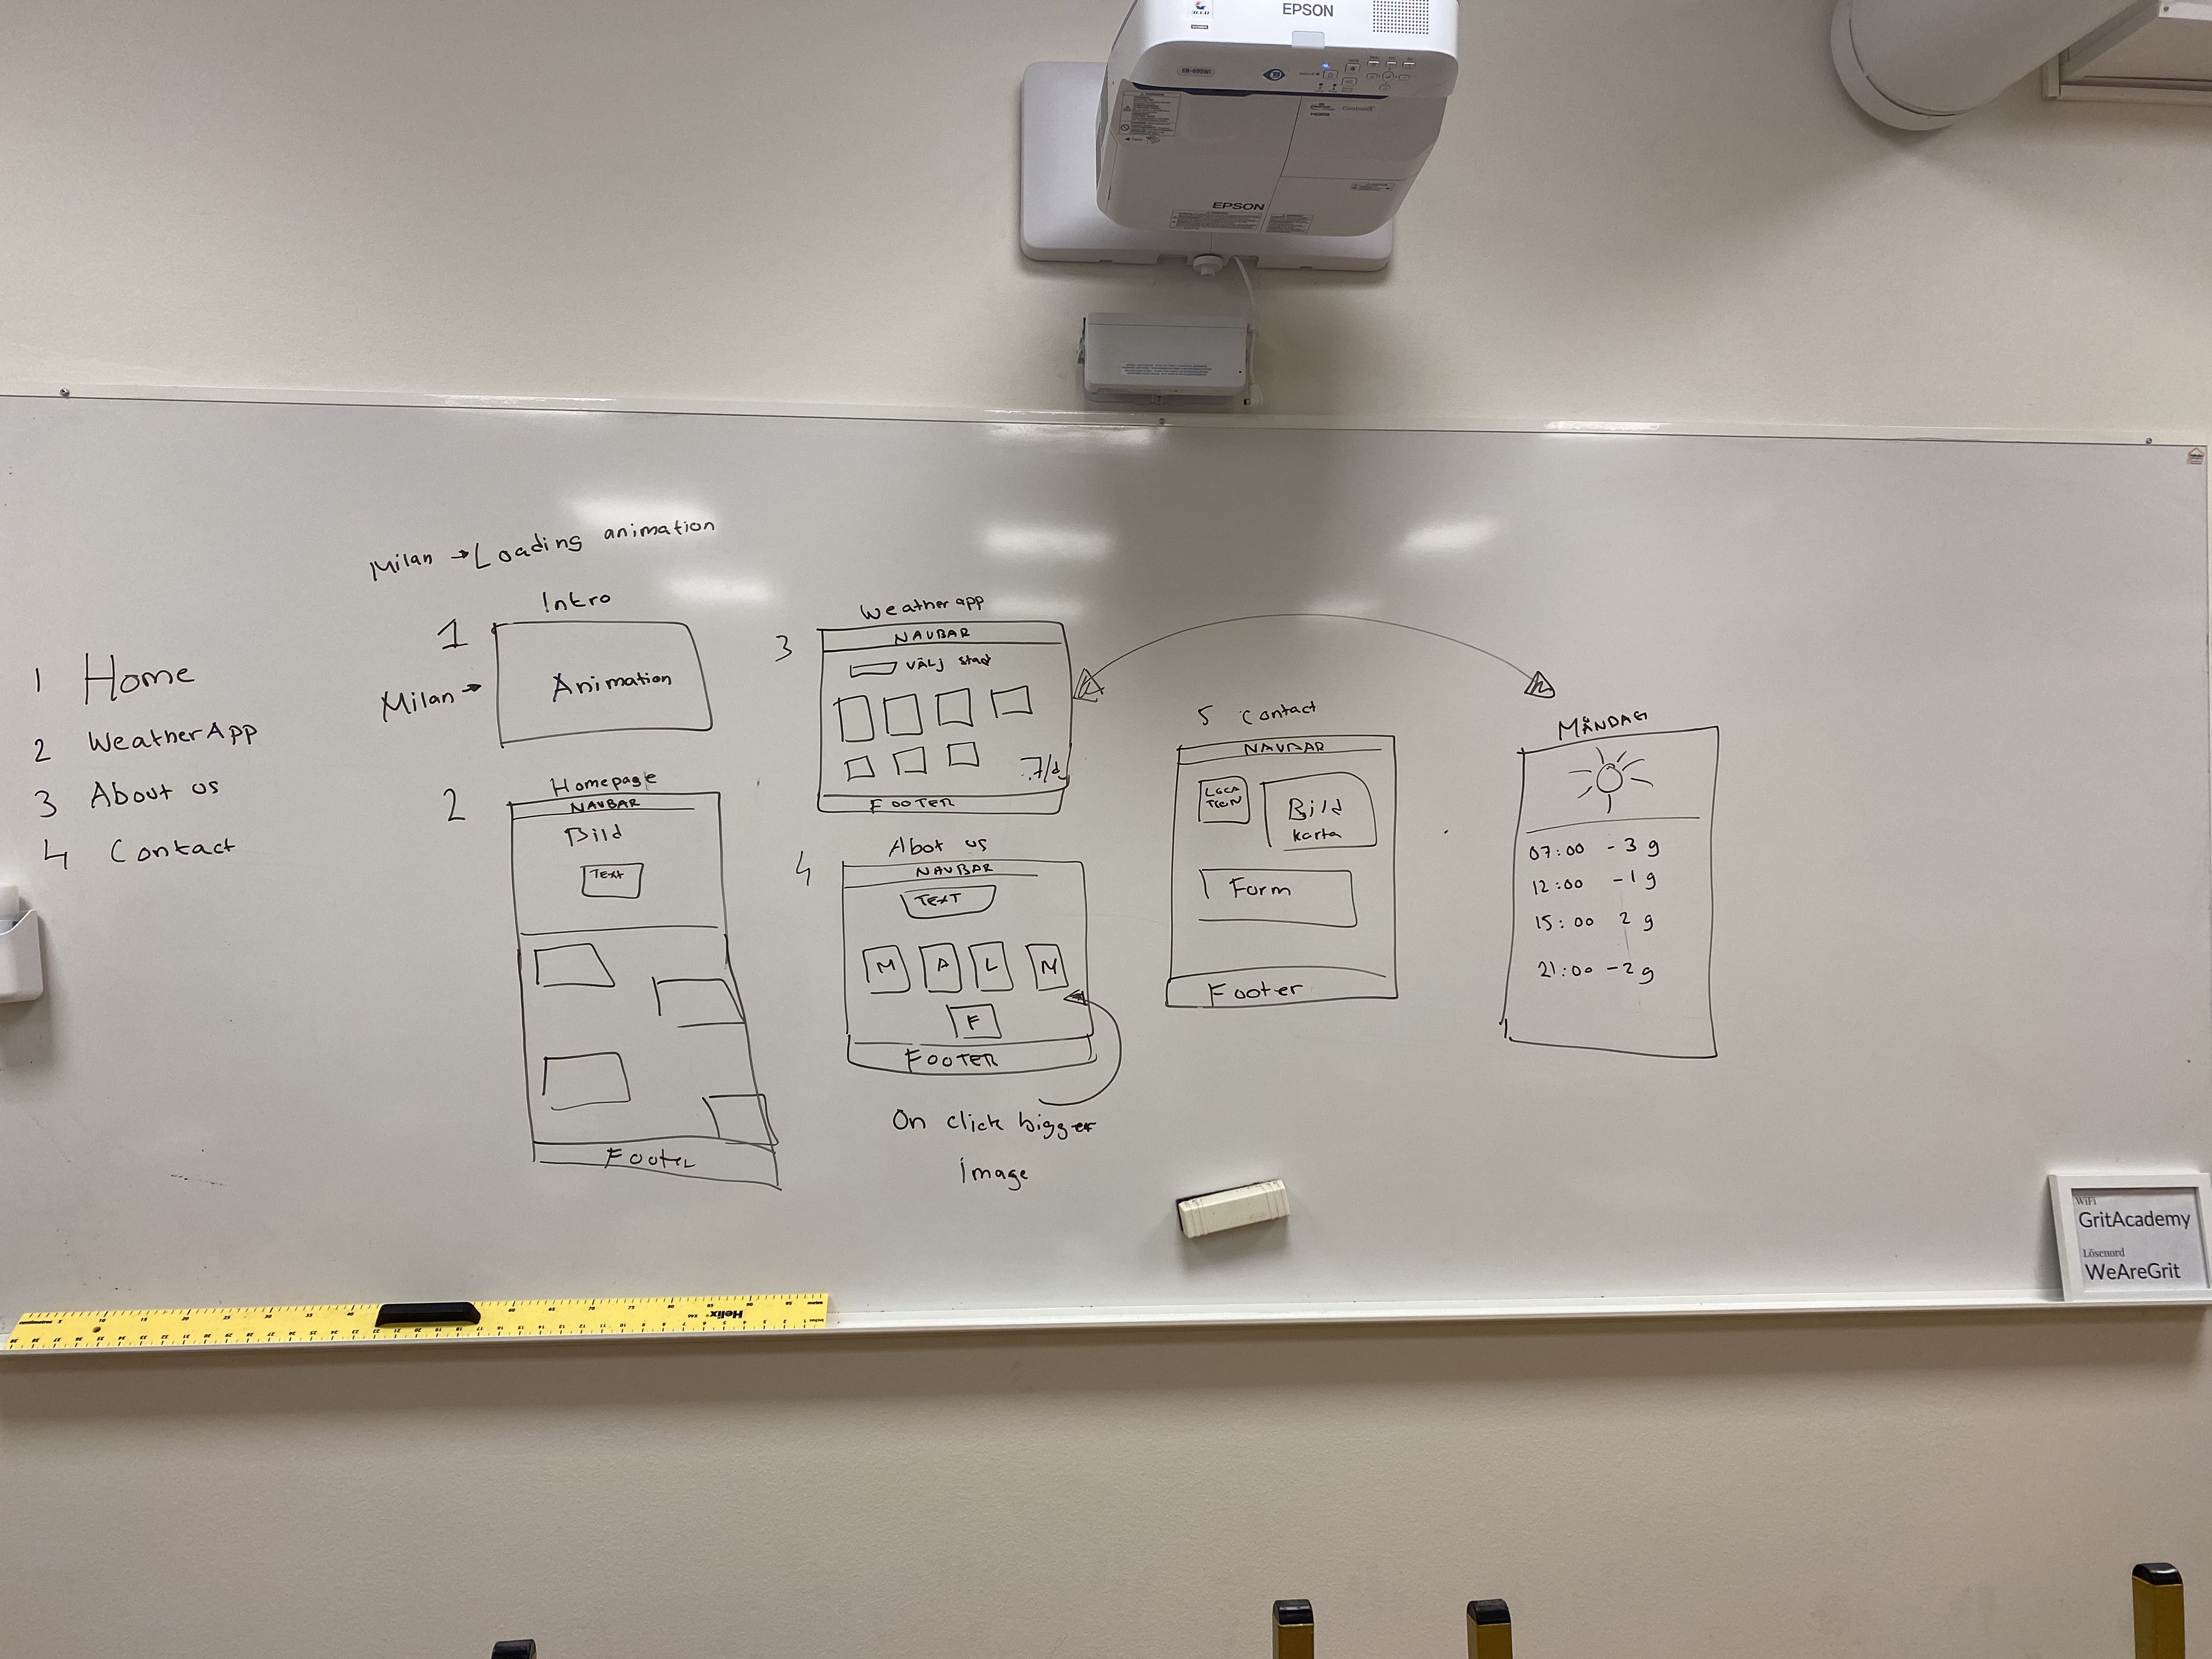 EPSON
EB-695Wi
EPSON
Milan → Loading animation
1 Home
2 WeatherApp
3 About us
4 Contact
1 Intro
Milan →
Animation
2 Homepage
NAVBAR
Bild
Text
Footer
3 Weatherapp
NAVBAR
VÄLJ stad
7/d
FOOTER
4 Abot us
NAVBAR
TEXT
M A L N
F
FOOTER
On click bigger
image
5 Contact
NAVBAR
LOCA
TION
Bild
karta
Form
Footer
MÅNDAG
07:00 -3 g
12:00 -1 g
15:00 2 g
21:00 -2 g
WiFi
GritAcademy
Lösenord
WeAreGrit
Helix